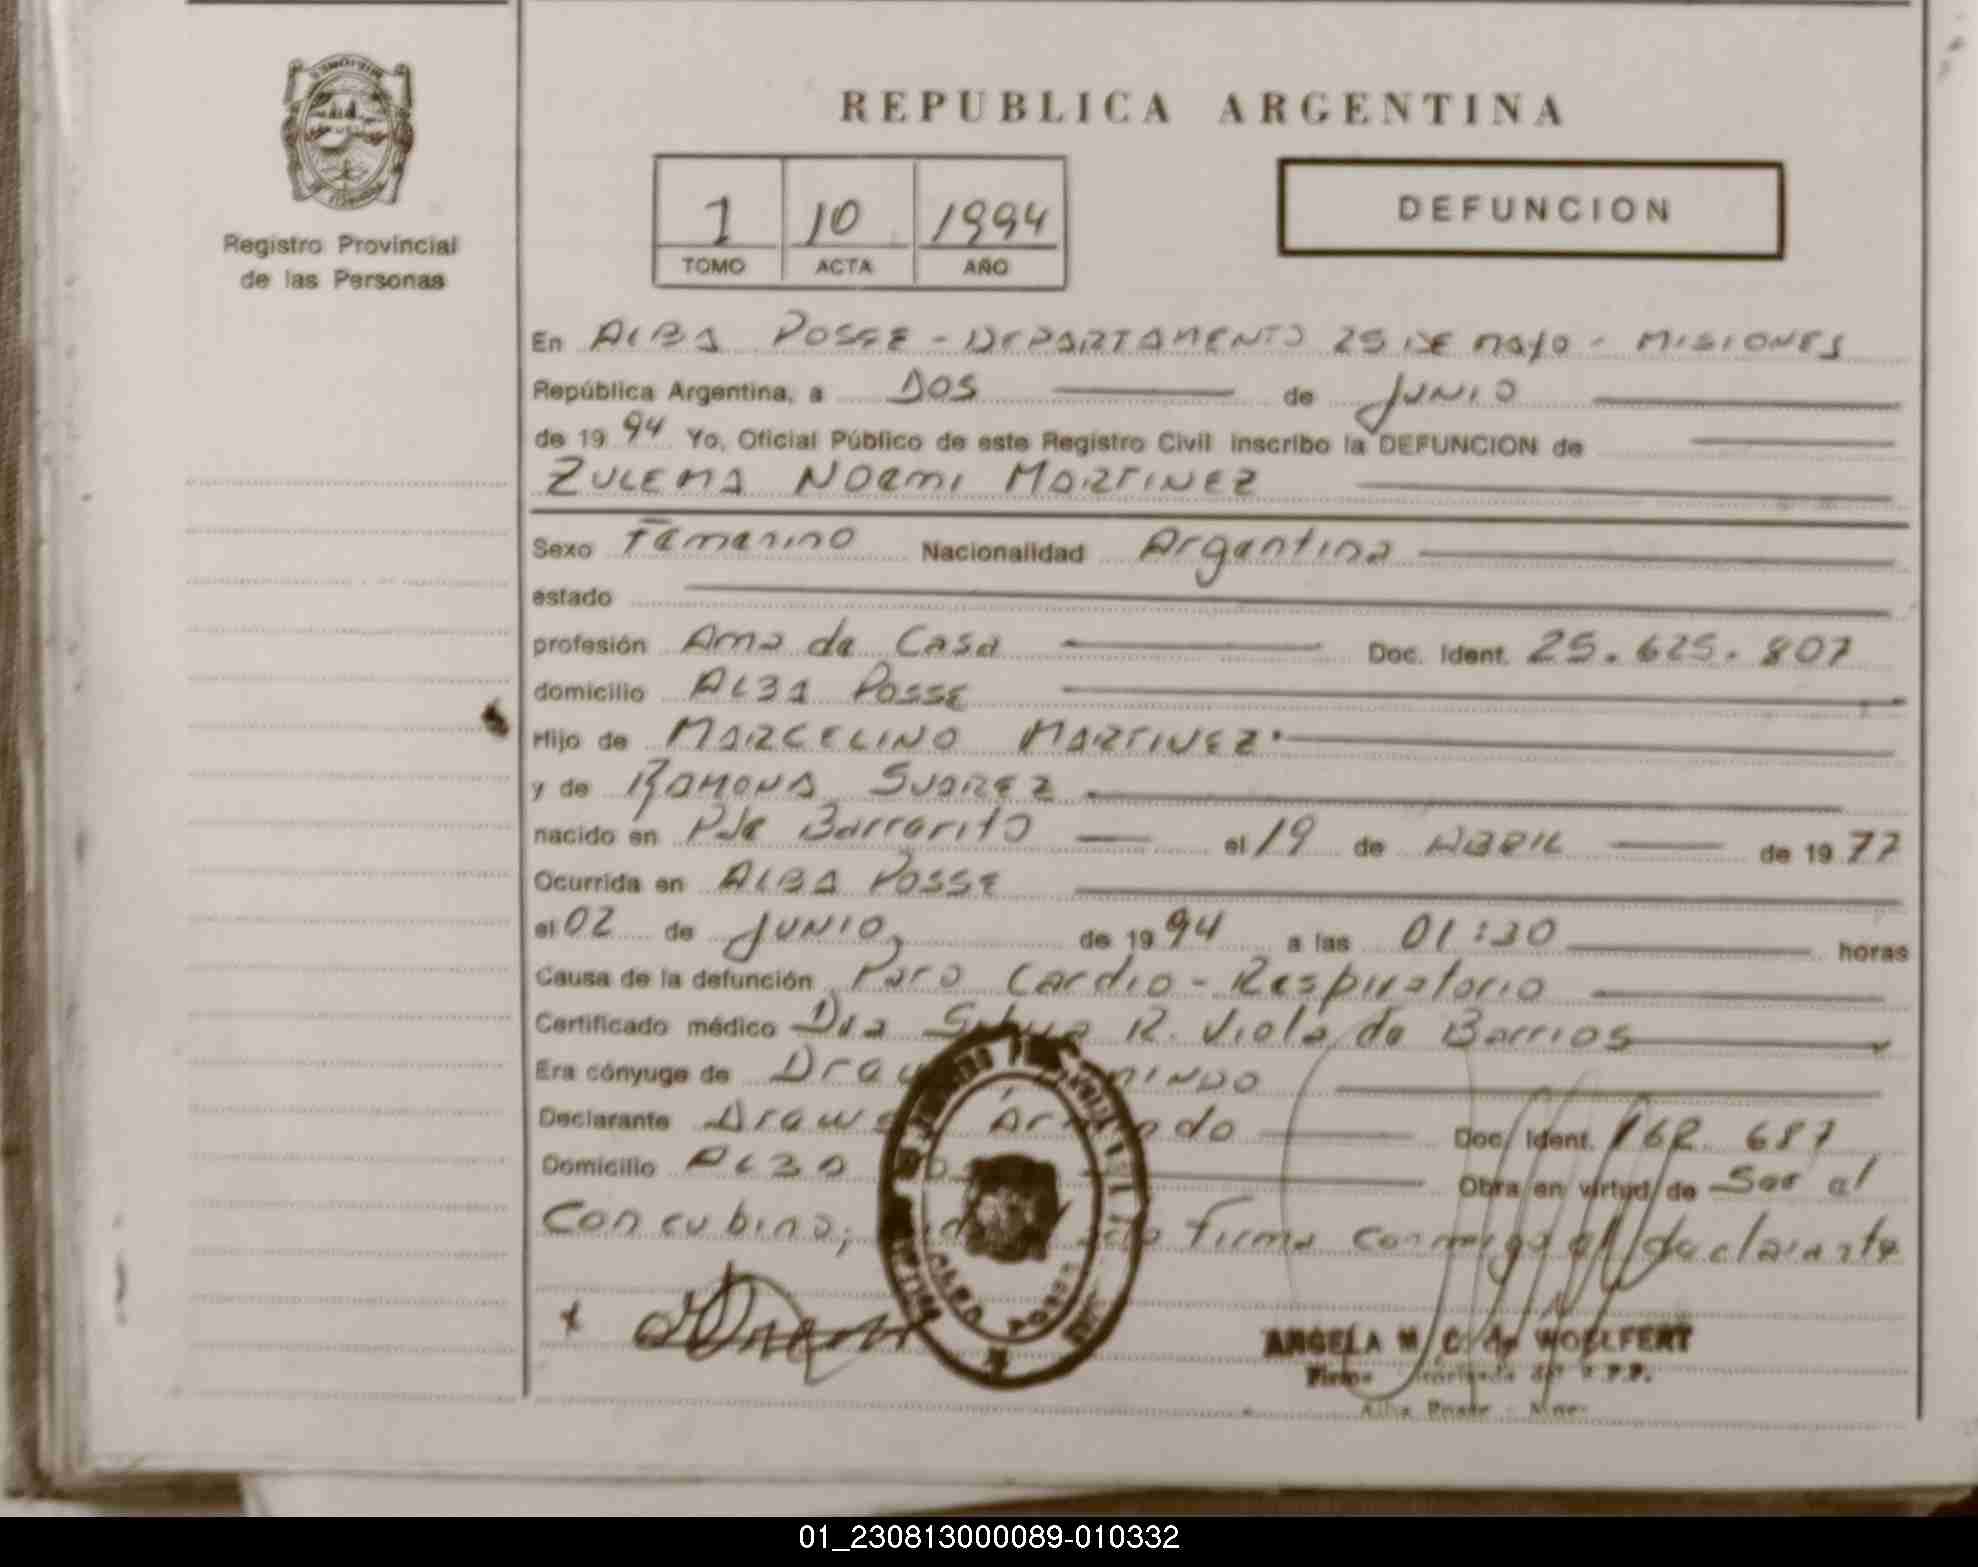 REPUBLICA ARGENTINA
Registro Provincial
de las Personas
1 10 1994
TOMO ACTA AÑO
DEFUNCION
En ALBA POSSE - DEPARTAMENTO 25 DE MAYO - MISIONES
República Argentina, a DOS de JUNIO
de 19 94 Yo, Oficial Público de este Registro Civil inscribo la DEFUNCION de
ZULEMA NOEMI MARTINEZ
Sexo Femenino Nacionalidad Argentina
estado
profesión Ama de Casa Doc. Ident. 25.625.807
domicilio ALBA POSSE
Hijo de MARCELINO MARTINEZ
y de RAMONA SUAREZ
nacido en Pje Barrerito el 19 de ABRIL de 19 77
Ocurrida en ALBA POSSE
el 02 de JUNIO, de 19 94 a las 01:30 horas
Causa de la defunción Paro Cardio - Respiratorio
Certificado médico Dra R. Viola de Barrios
Era cónyuge de
Declarante Doc. Ident. 687
Domicilio ALBA Obra en virtud de Ser el
Concubino; firma conmigo el declarante
ANGELA M. C. de WOELFERT
Alba Posse
01_230813000089-010332